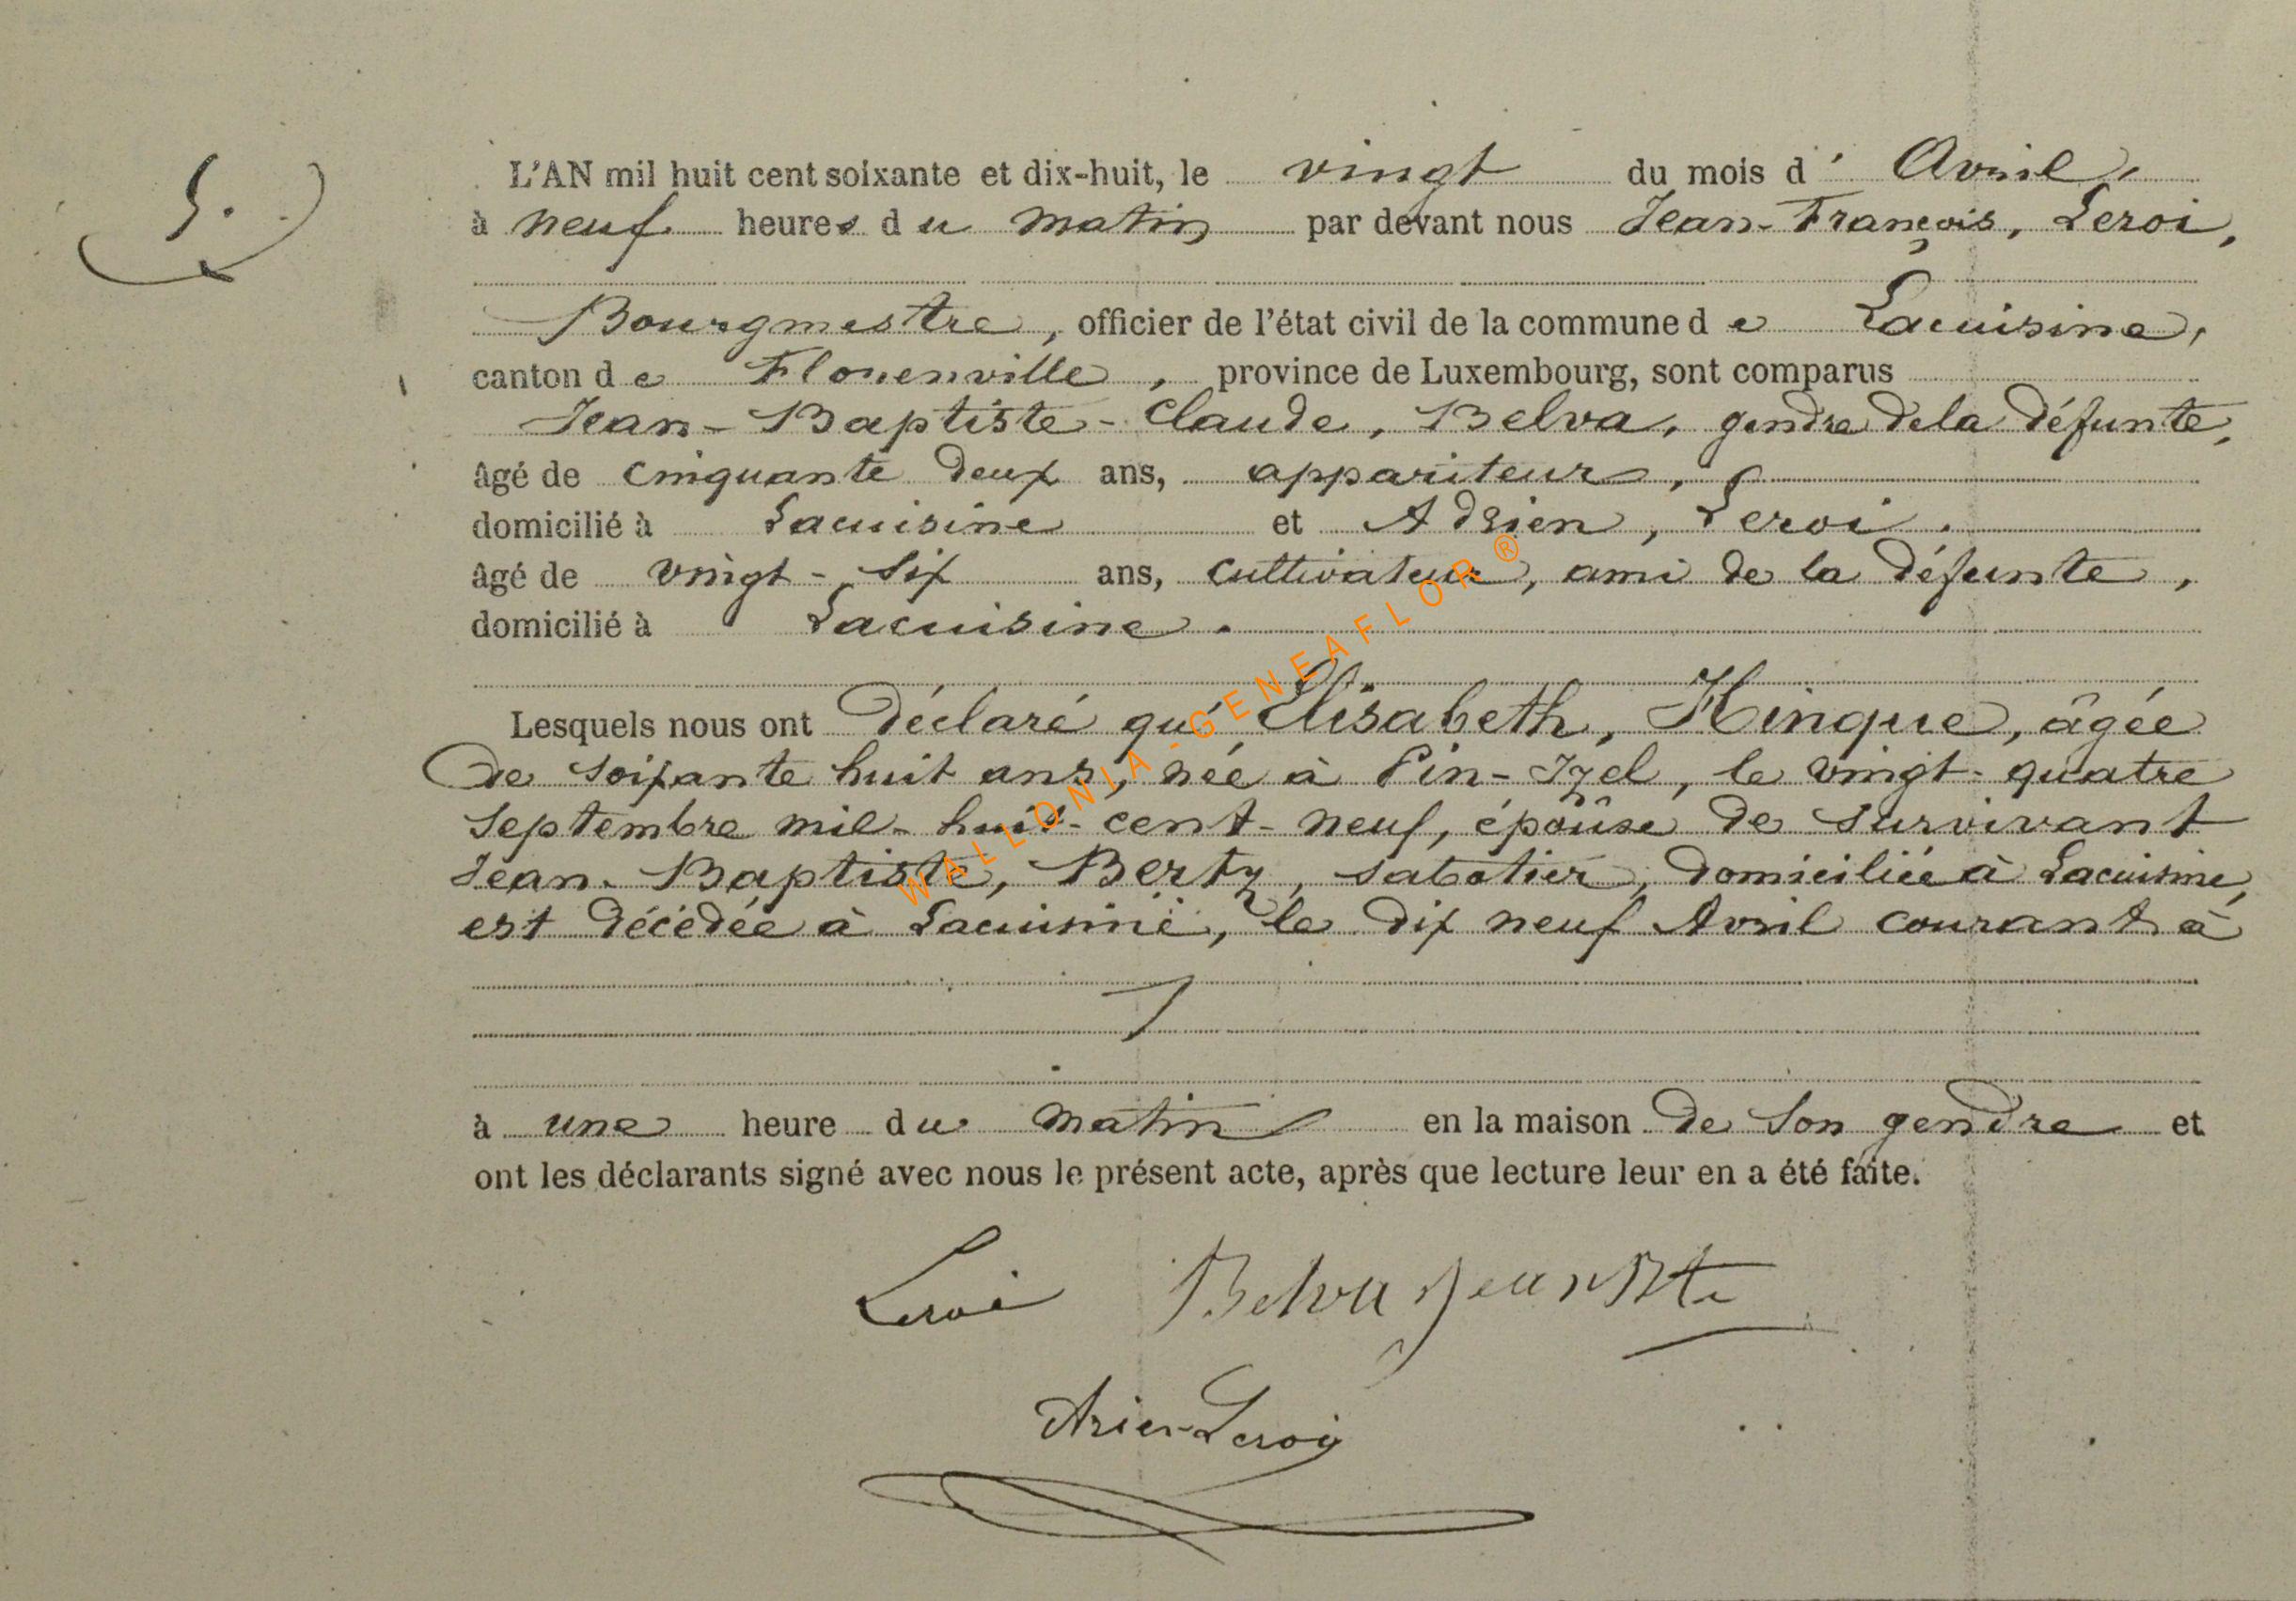 5.
L'AN mil huit cent soixante et dix-huit, le vingt du mois d' Avril,
à neuf heures du matin par devant nous Jean-François, Leroi,
Bourgmestre, officier de l'état civil de la commune de Lacuisine,
canton de Florenville, province de Luxembourg, sont comparus
Jean-Baptiste-Claude, Belva, gendre de la défunte,
âgé de cinquante deux ans, appariteur,
domicilié à Lacuisine et Adrien, Leroi.
âgé de vingt-six ans, cultivateur, ami de la défunte,
domicilié à Lacuisine.
Lesquels nous ont déclaré qu'Elisabeth, Hinque, âgée
de soixante huit ans, née à Pin-Izel, le vingt-quatre
Septembre mil-huit-cent-neuf, épouse de survivant
Jean-Baptiste, Bertz, sabotier, domiciliée à Lacuisine,
est décédée à Lacuisine, le dix neuf Avril courant à
à une heure du matin en la maison de son gendre et
ont les déclarants signé avec nous le présent acte, après que lecture leur en a été faite.
Leroi Belva Jean Bte
Arien Leroy
WALLONIA-GENEAFLOR®